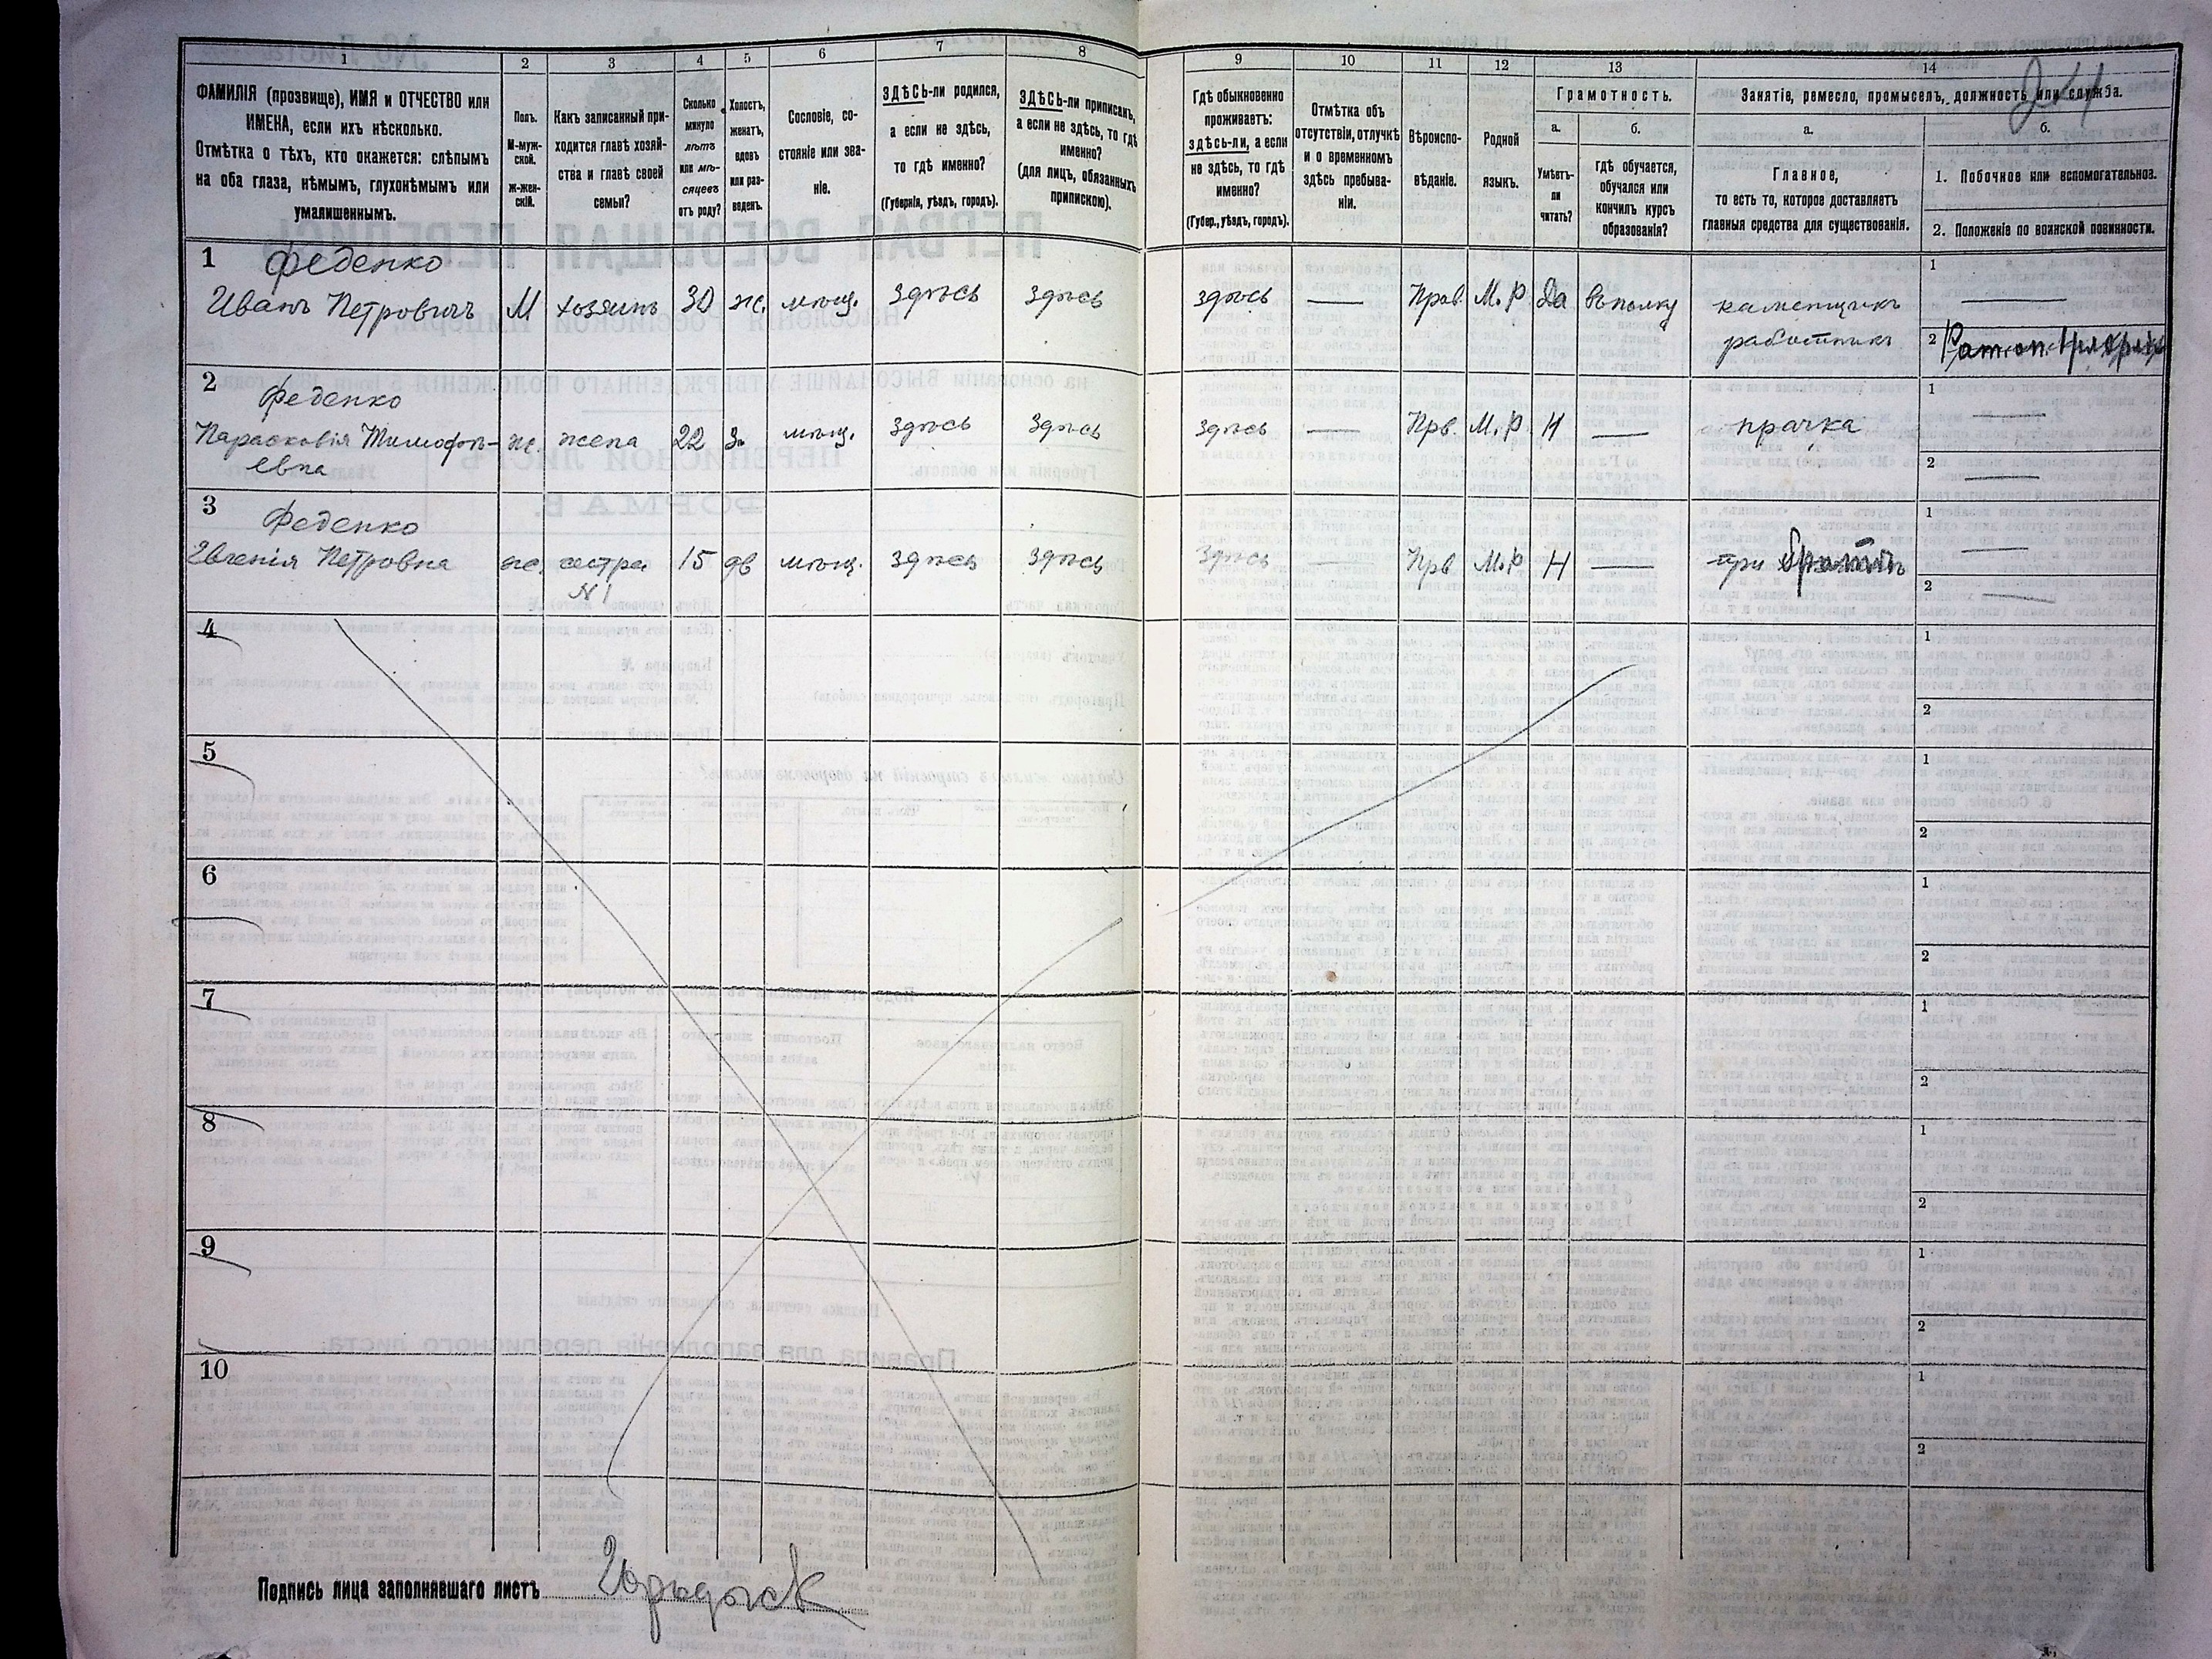 1
2
3
4
5
6
7
8
9
10
11
12
13
14
ФАМИЛІЯ (прозвище), ИМЯ и ОТЧЕСТВО или
ИМЕНА, если ихъ нѣсколько.
Отмѣтка о тѣхъ, кто окажется: слѣпымъ
на оба глаза, нѣмымъ, глухонѣмымъ или
умалишеннымъ.
Полъ.
М-муж-
ской.
Ж-жен-
скій.
Какъ записанный при-
ходится главѣ хозяй-
ства и главѣ своей
семьи?
Сколько
минуло
лѣтъ
или мѣ-
сяцевъ
отъ роду?
Холостъ,
женатъ,
вдовъ
или раз-
веденъ.
Сословіе, со-
стояніе или зва-
ніе.
ЗДѢСЬ-ли родился,
а если не здѣсь,
то гдѣ именно?
(Губернія, уѣздъ, городъ).
ЗДѢСЬ-ли приписанъ,
а если не здѣсь, то гдѣ
именно?
(для лицъ, обязанныхъ
припискою).
Гдѣ обыкновенно
проживаетъ:
здѣсь-ли, а если
не здѣсь, то гдѣ
именно?
(Губер., уѣздъ, городъ).
Отмѣтка объ
отсутствіи, отлучкѣ
и о временномъ
здѣсь пребыва-
ніи.
Вѣроиспо-
вѣданіе.
Родной
языкъ.
Грамотность.
а.
Умѣетъ-
ли
читать?
б.
гдѣ обучается,
обучался или
кончилъ курсъ
образованія?
Занятіе, ремесло, промыселъ, должность или служба.
а.
Главное,
то есть то, которое доставляетъ
главныя средства для существованія.
б.
1. Побочное или вспомогательное.
2. Положеніе по воинской повинности.
1 Феденко
Иванъ Петровичъ М хозяинъ 30 ж. мѣщ. здѣсь здѣсь здѣсь — Прав. М. Р. Да въ полку каменщикъ
работникъ
1 —
2
2 Феденко
Парасковія Тимофѣ-
евна
ж. жена 22 з. мѣщ. здѣсь здѣсь здѣсь — Прв. М. Р. Н — прачка
1 —
2 —
3 Феденко
Евгенія Петровна ж. сестра
№1
15 дв мѣщ. здѣсь здѣсь здѣсь — Прв М. Р Н — при братѣ
1 —
2 —
4
1
2
5
1
2
6
1
2
7
1
2
8
1
2
9
1
2
10
1
2
Подпись лица заполнявшаго листъ